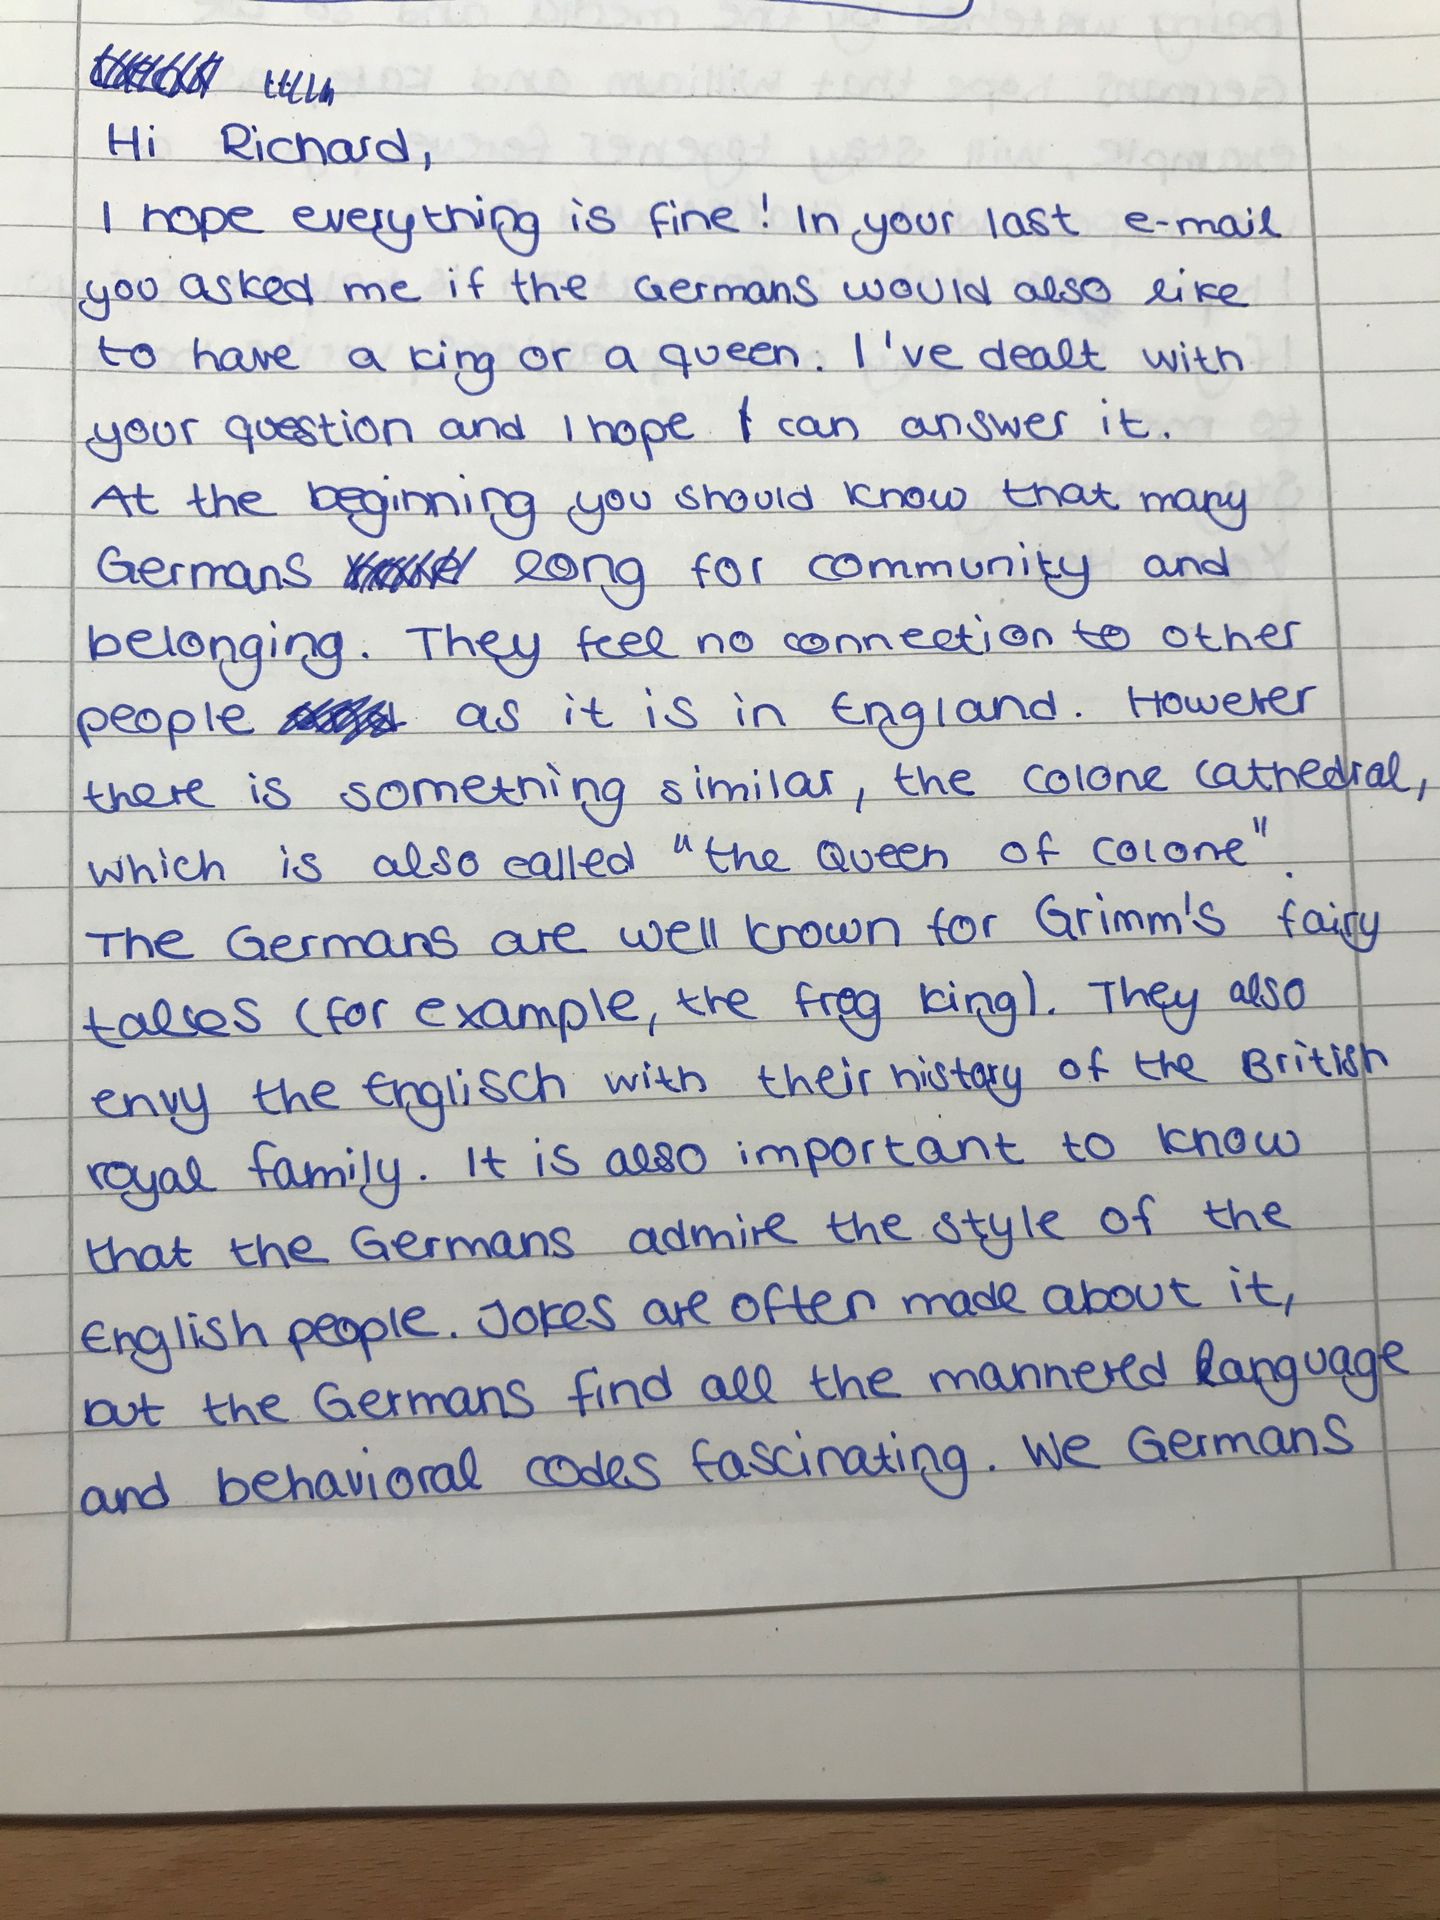 Hi Richard,
I hope everything is fine! In your last e-mail
you asked me if the Germans would also like
to have a king or a queen. I've dealt with
your question and I hope I can answer it.
At the beginning you should know that many
Germans long for community and
belonging. They feel no connection to other
people as it is in England. However
there is something similar, the Colone Cathedral,
which is also called "the Queen of Colone".
The Germans are well known for Grimm's fairy
talses (for example, the frog king). They also
envy the Englisch with their history of the British
royal family. It is also important to know
that the Germans admire the style of the
English people. Jokes are often made about it,
but the Germans find all the mannered language
and behavioral codes fascinating. We Germans